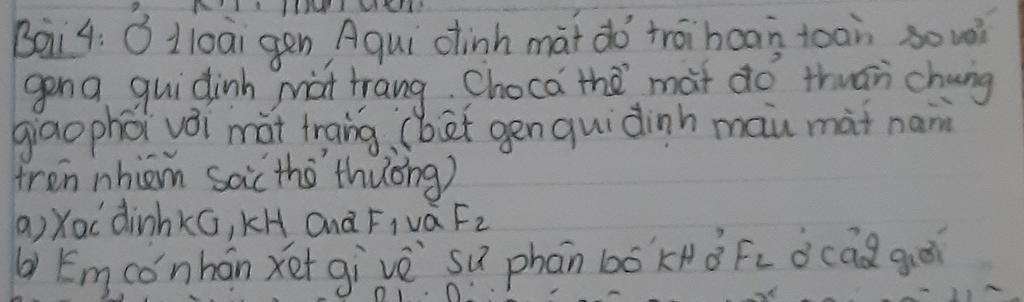 Bài 4: Ở 1 loài gen A qui định mắt đỏ trội hoàn toàn so với
gen a qui định mắt trắng. Cho cá thể mắt đỏ thuần chủng
giao phối với mắt trắng (biết gen qui định màu mắt nằm
trên nhiễm sắc thể thường)
a) Xác định KG, KH của F1 và F2
b) Em có nhận xét gì về sự phân bố KH ở F2 ở cả 2 giới